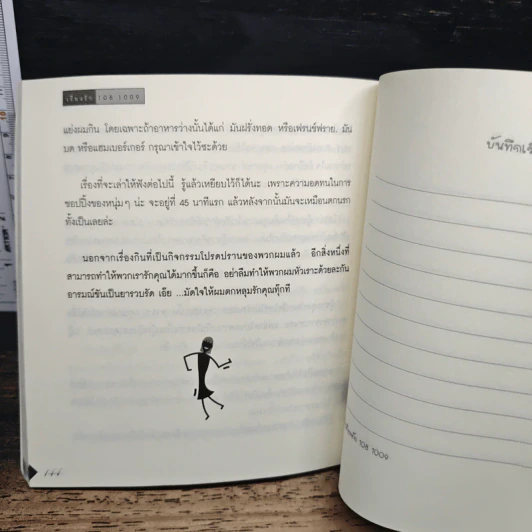 เรื่องรัก 108 1009
แย่งผมกิน โดยเฉพาะถ้าอาหารว่างนั้นได้แก่ มันฝรั่งทอด หรือเฟรนช์ฟราย, มัน
บด หรือแฮมเบอร์เกอร์ กรุณาเข้าใจไว้ซะด้วย
เรื่องที่จะเล่าให้ฟังต่อไปนี้ รู้แล้วเหยียบไว้ก็ได้นะ เพราะความอดทนในการ
ชอปปิ้งของหนุ่มๆ น่ะ จะอยู่ที่ 45 นาทีแรก แล้วหลังจากนั้นมันจะเหมือนตกนรก
ทั้งเป็นเลยล่ะ
นอกจากเรื่องกินที่เป็นกิจกรรมโปรดปรานของพวกผมแล้ว อีกสิ่งหนึ่งที่
สามารถทำให้พวกเรารักคุณได้มากขึ้นก็คือ อย่าลืมทำให้พวกผมหัวเราะด้วยละกัน
อารมณ์ขันเป็นยารวบรัด เอ๊ย ...มัดใจให้ผมตกหลุมรักคุณทุ้กที
144
108 1009